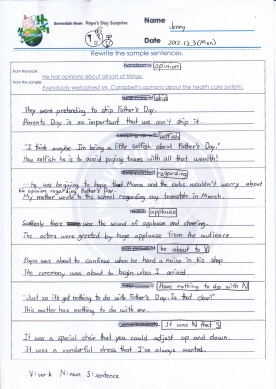 Berenstain Bears Papa's Day Surprise
Name
Jenny
Date 2012. 12. 3 (Mon)
Rewrite the sample sentences.
opinion
from the book
He has opinions about all sort of things.
from the sample
Everybody welcomed Mr. Campbell's opinions about the health care system.
skip
They were pretending to skip Father's Day.
Parents Day is so important that we can't skip it.
selfish
"I think maybe I'm being a little selfish about Father's Day."
How selfish he is to avoid paying taxes with all that wealth!
regarding
he was begining to hope that Mama and the cubs wouldn't worry about
his opinion regarding Father's Day.
My mother wrote to the school regarding my transfer in March.
applause
Suddenly there was the sound of applause and cheering.
The actors were greeted by huge applause from the audience
be about to V
Papa was about to continue when he heard a noise in his shop
The ceremony was about to begin when I arrived
Have nothing to do with N
"Just so it's got nothing to do with Father's Day. Is that clear?"
This matter has nothing to do with me.
It was N that S
It was a special chair that you could adjust up and down.
It was a wonderful dress that I've always wanted.
V: verb N: noun S: sentence